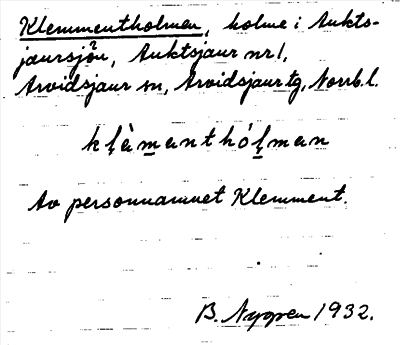 Klemmentholmen, holme i Aukts-
jaursjön, Auktsjaur nr 1,
Arvidsjaur sn, Arvidsjaur tg, Norrb. l.
kḷàm̱anthóḻman
Av personnamnet Klemment.
B. Nygren 1932.